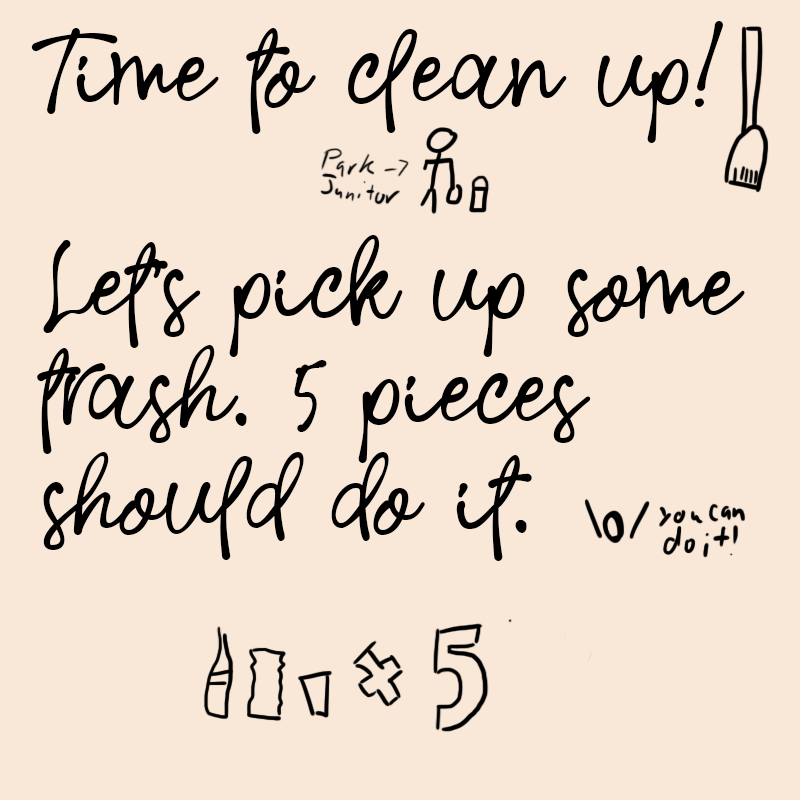 Time to clean up!
Park ->
Junitor
Let's pick up some
trash. 5 pieces
should do it.
\o/ you can
do it!
x 5